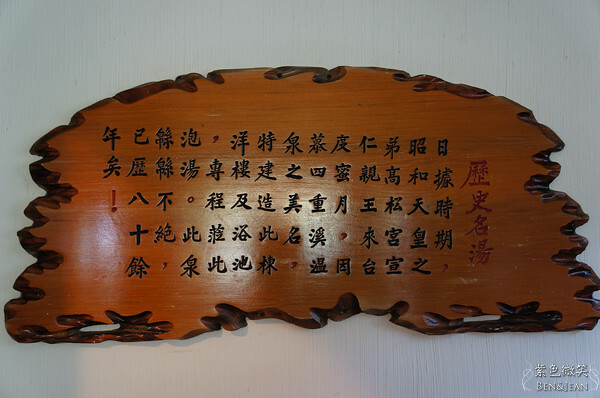 歷史名湯
日據時期，
昭和天皇之
弟高松宮宣
仁親王來台
度蜜月。因
慕四重溪溫
泉之美名，
特建造此棟
洋樓及浴池
，專程蒞此
泡湯。此泉
緜緜不絕，
已歷八十餘
年矣！
紫色微笑
BEN&JEAN